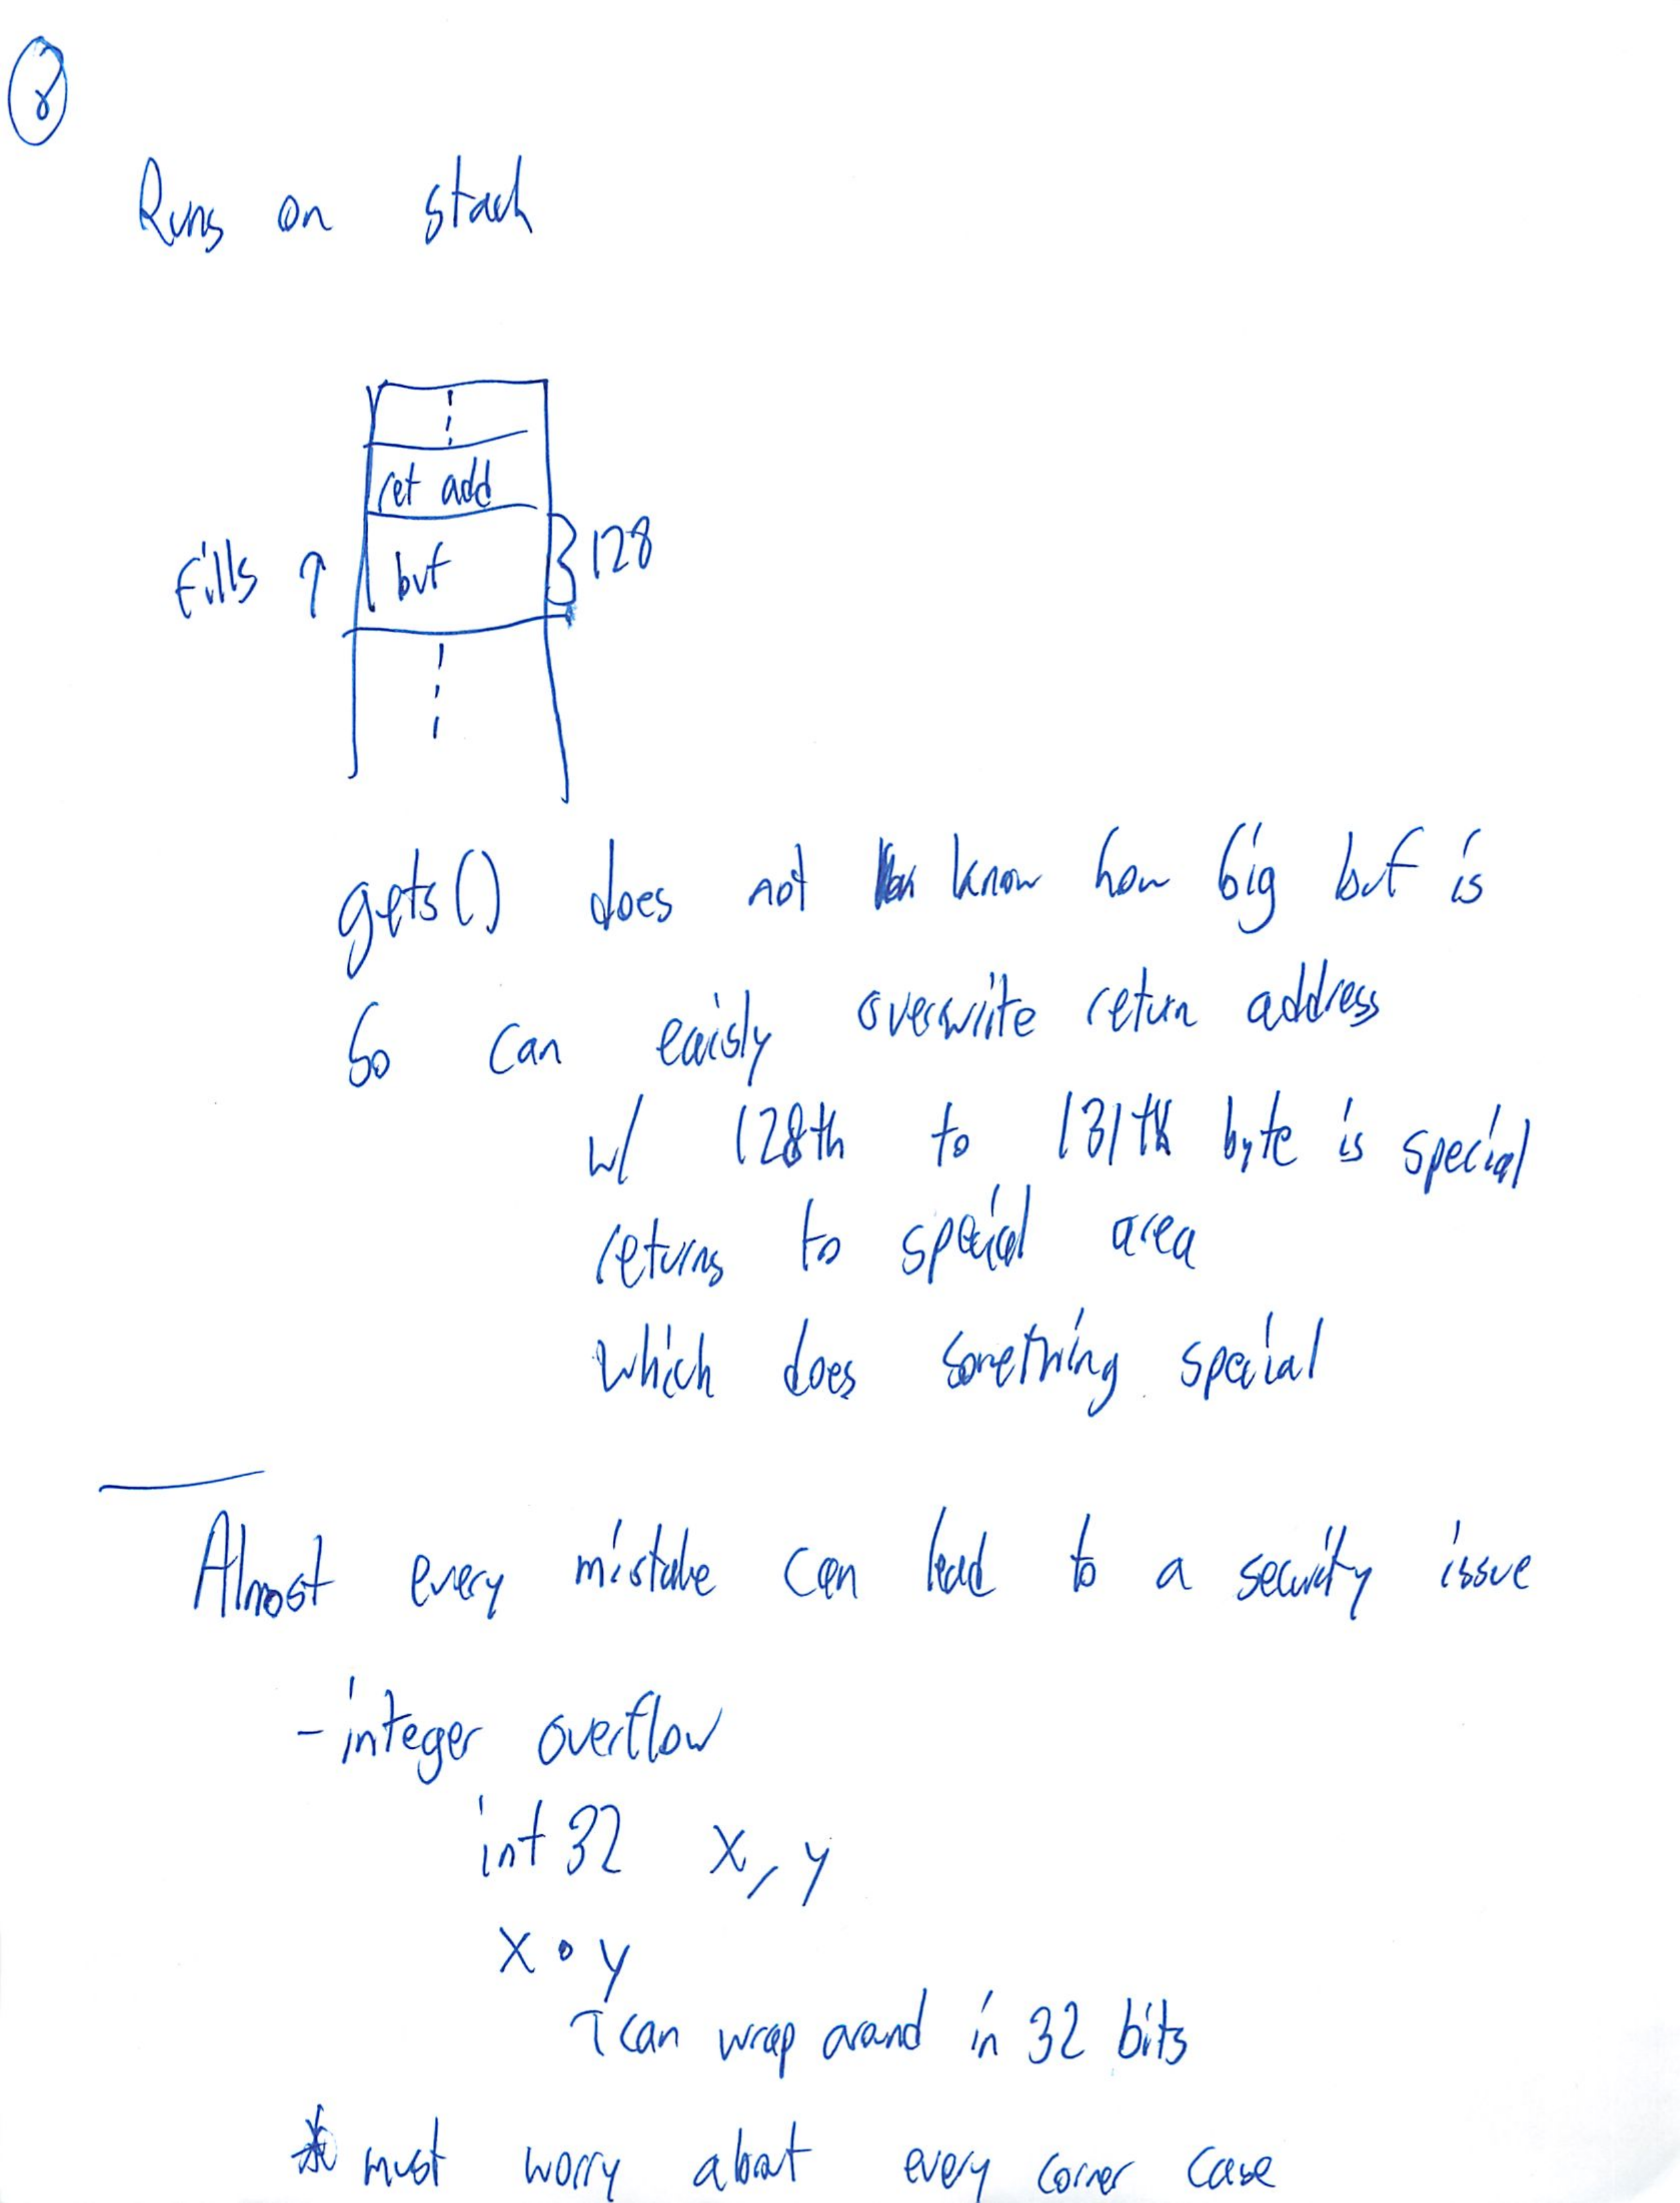 8
Runs on stack
ret add
fills ↑ buf } 128
gets() does not know how big buf is
So can eaisly overwrite return address
w/ 128th to 131th byte is special
returns to special area
which does something special
Almost every mistake can lead to a security issue
- integer overflow
int 32 x, y
x • y
↑ can wrap around in 32 bits
* must worry about every corner case